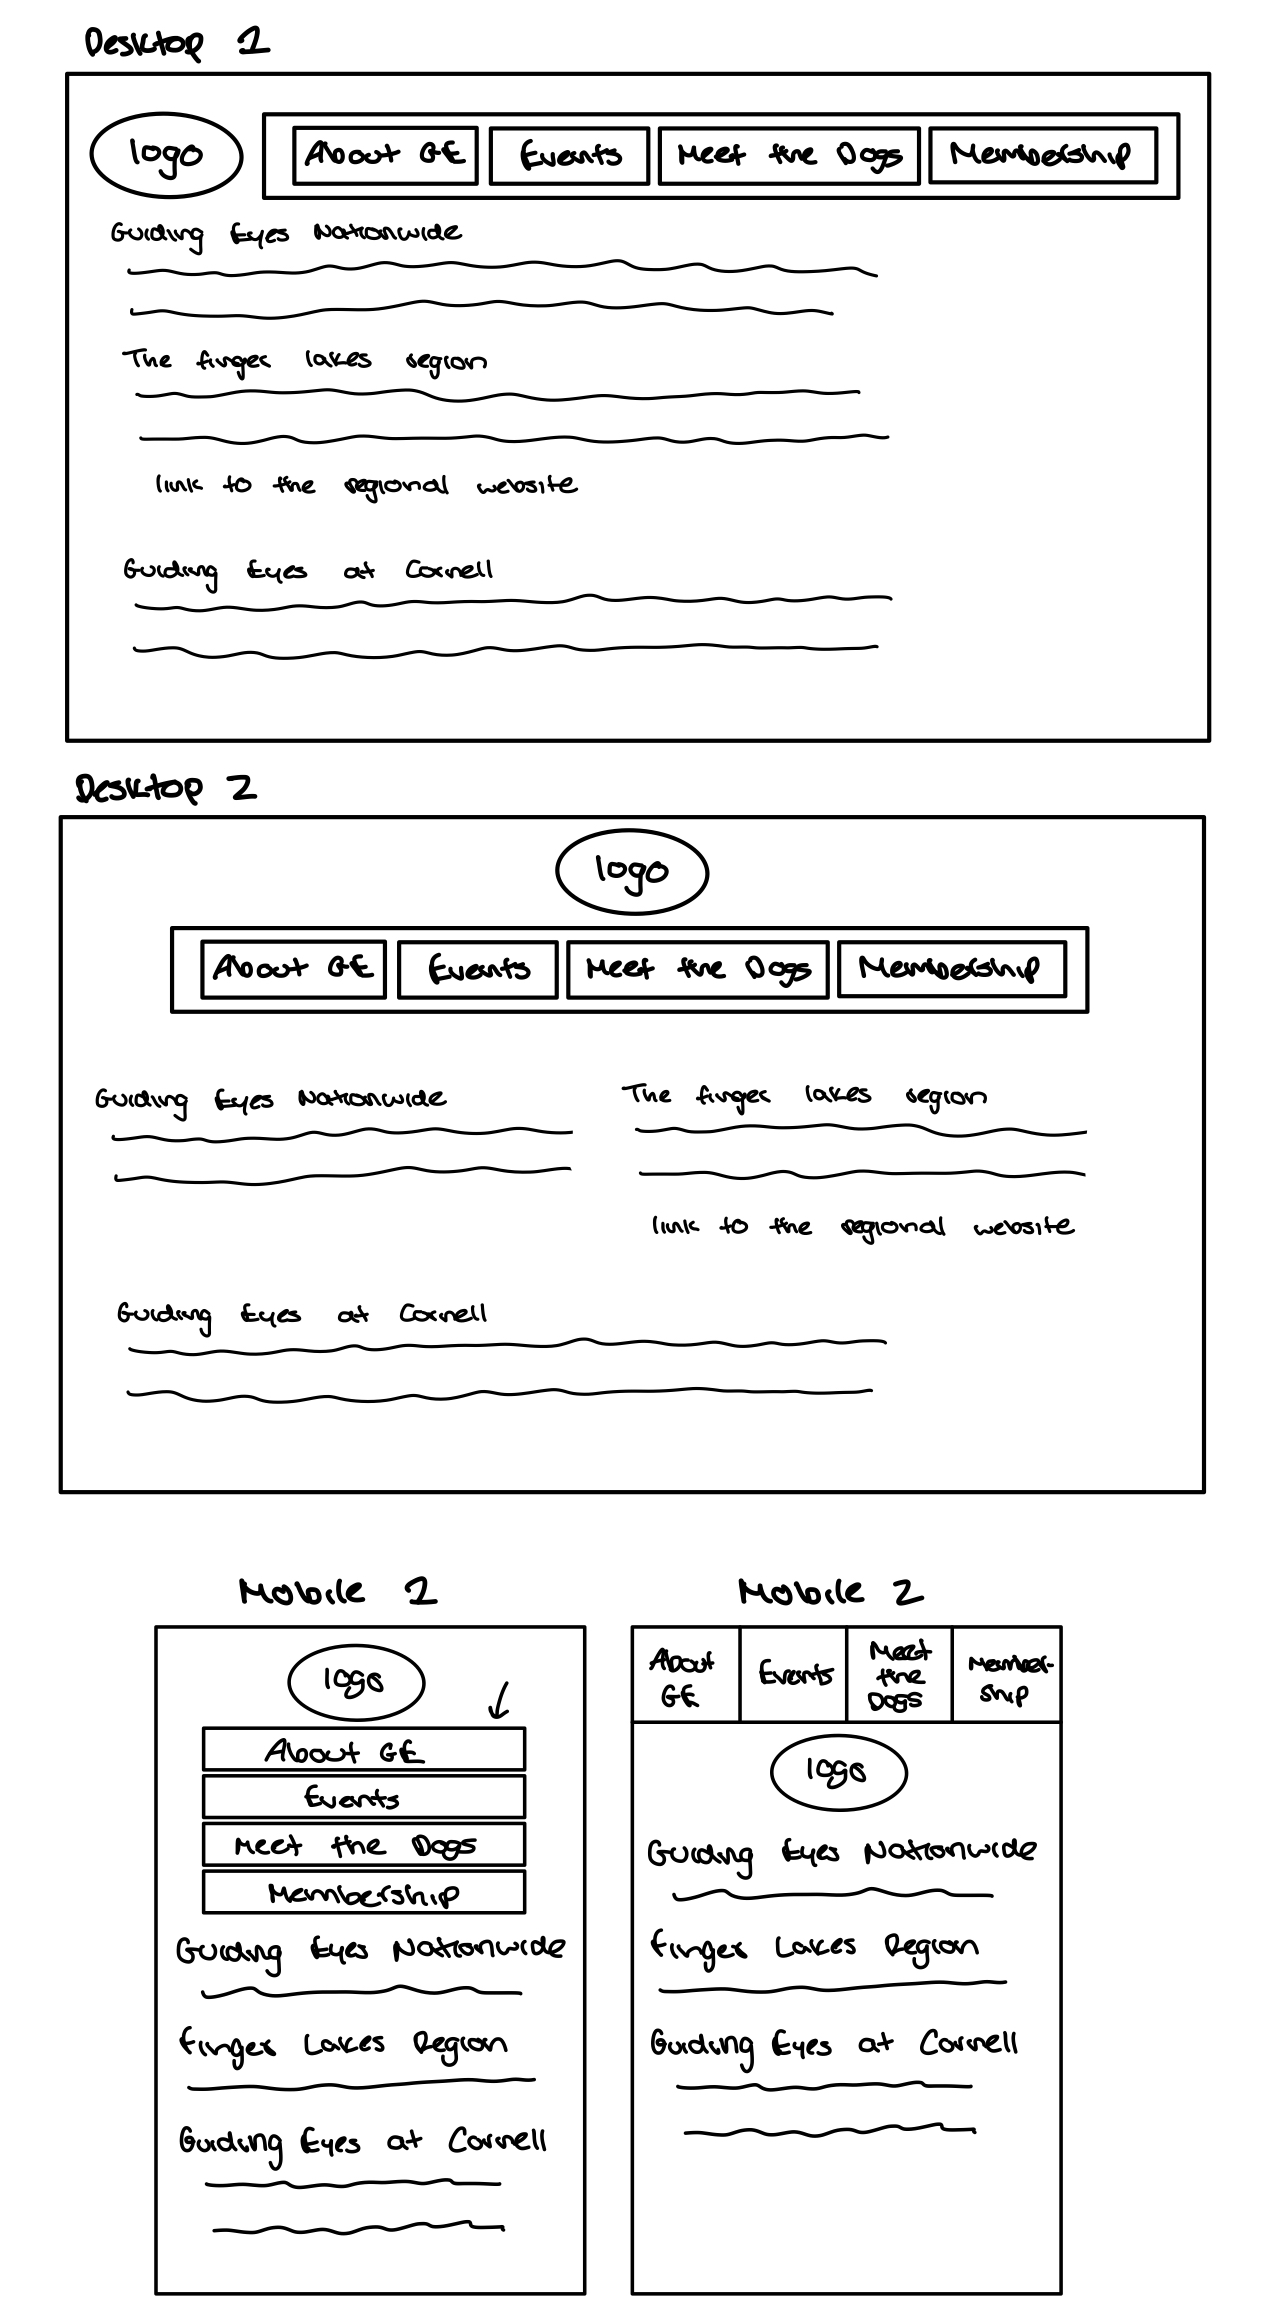 Desktop 1
logo About GE Events Meet the Dogs Membership
Guiding Eyes Nationwide
The finger lakes region
link to the regional website
Guiding Eyes at Cornell
Desktop 2
logo
About GE Events Meet the Dogs Membership
Guiding Eyes Nationwide
The finger lakes region
link to the regional website
Guiding Eyes at Cornell
Mobile 1
logo
About GE
Events
Meet the Dogs
Membership
Guiding Eyes Nationwide
Finger Lakes Region
Guiding Eyes at Cornell
Mobile 2
About
GE
Events
Meet
the
Dogs
Member-
ship
logo
Guiding Eyes Nationwide
Finger Lakes Region
Guiding Eyes at Cornell